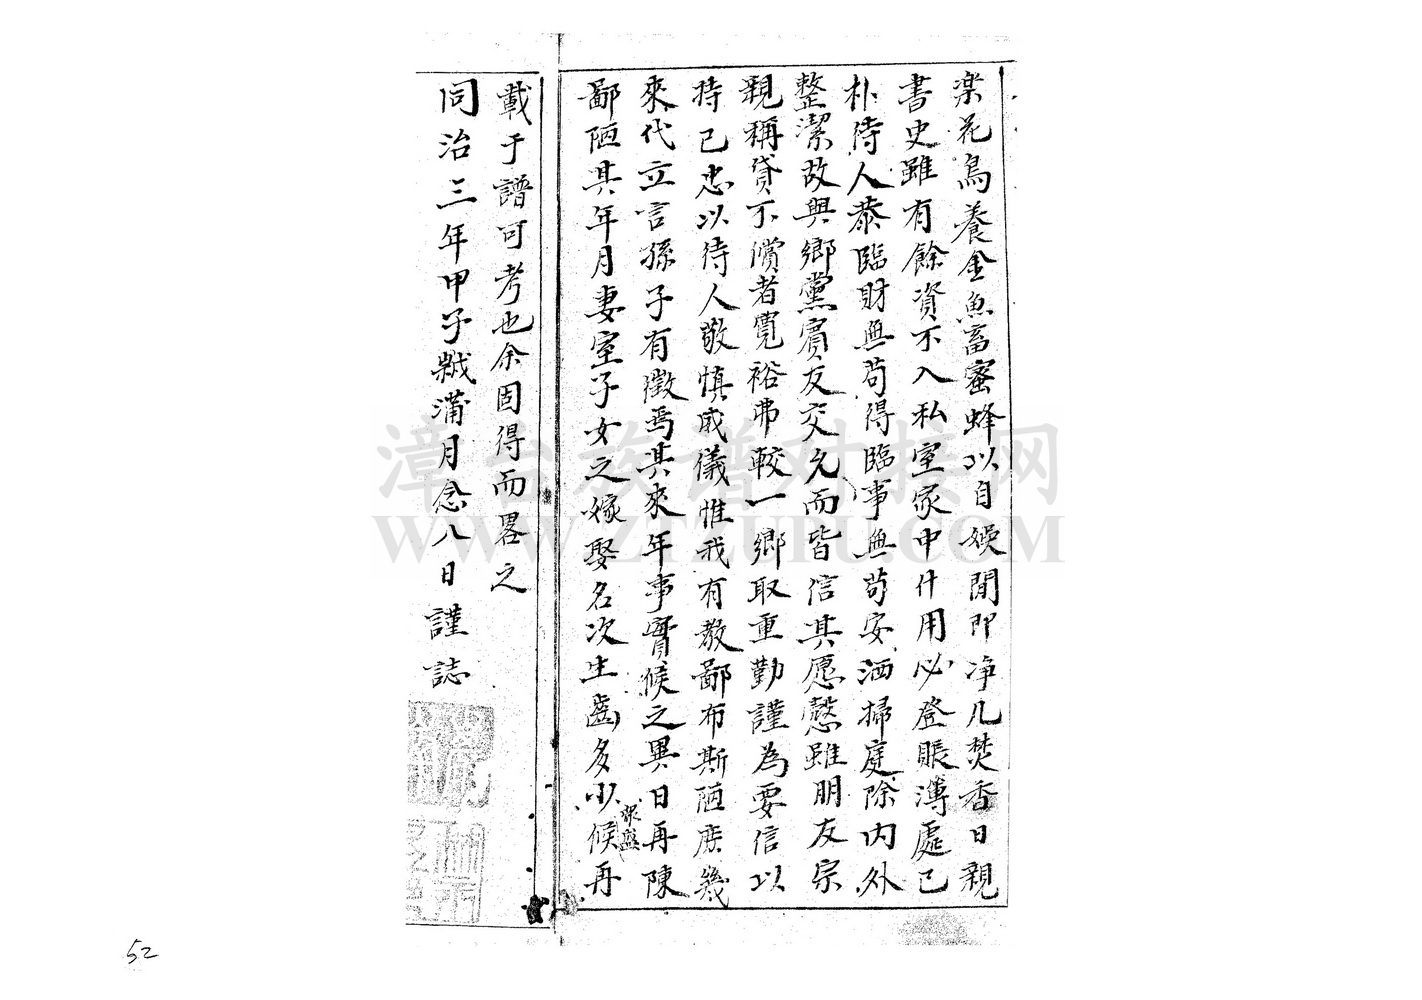 楽花鳥養金魚畜蜜蜂以自娛閒即净几焚香日親
書史雖有餘資不入私室家中什用必登賬薄處已
朴待人恭臨財無苟得臨事無苟安洒掃庭除內外
整潔故與鄉黨賓友交久而皆信其愿慤雖朋友宗
親稱貸不償者寬裕弗較一鄉取重勤謹為要信以
持己忠以待人敬慎威儀惟我有教鄙布斯陋庶幾
來代立言孫子有徵焉其來年事實候之異日再陳
鄙陋其年月妻室子女之嫁娶名次生齒多少候再
載于譜可考也余固得而畧之
同治三年甲子蒲月念八日謹誌
漳台族谱对接网
WWW.ZTZUPU.COM
52